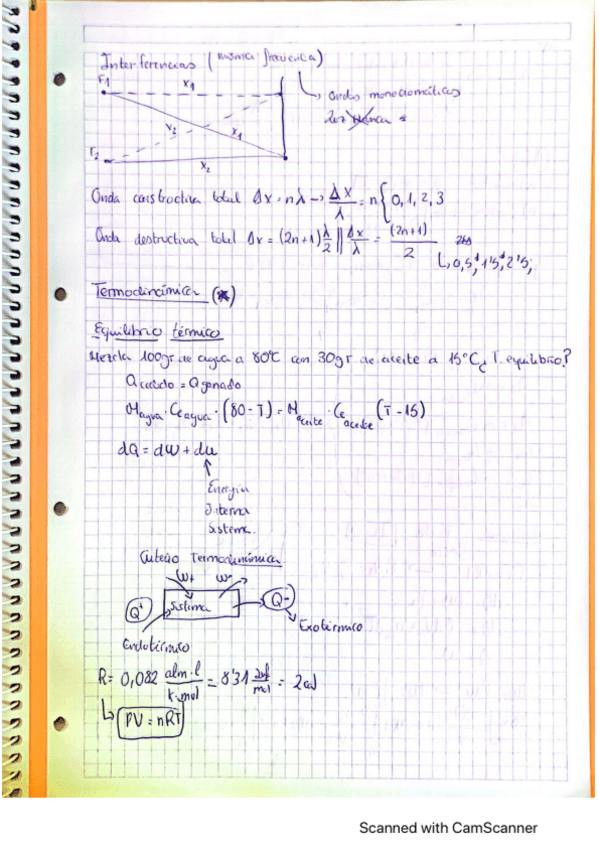 Interferencias (misma frecuencia)
F1
x1
ondas monocromáticas
x2
x1
luz blanca
F2
x2
Onda constructiva total Δx = nλ → Δx/λ = n { 0, 1, 2, 3
Onda destructiva total Δx = (2n+1) λ/2 || Δx/λ = (2n+1)/2
0,5, 1'5, 2'5;
Termodinámica (*)
Equilibrio térmico
Mezcla 100gr de agua a 80°C con 30gr de aceite a 15°C ¿T. equilibrio?
Q cedido = Q ganado
M agua · Ce agua · (80 - T) = M aceite · Ce aceite (T - 15)
dQ = dW + du
↑
Energía
Interna
Sistema.
Criterio Termodinámica
W+ W-
Q+ Sistema Q-
Exotérmico
Endotérmico
R = 0,082 atm·l/K·mol = 8'31 /mol = 2cal
PV = nRT
Scanned with CamScanner